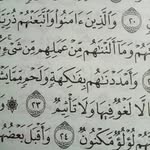 ٢٠ وَالَّذِينَ ءَامَنُوا وَاتَّبَعَتْهُمْ
وَمَا أَلَتْنَٰهُم مِّنْ عَمَلِهِم مِّن شَىْءٍ
وَأَمْدَدْنَٰهُم بِفَٰكِهَةٍ وَلَحْمٍ
لَّا لَغْوٌ فِيهَا وَلَا تَأْثِيمٌ ٢٣
لُؤْلُؤٌ مَّكْنُونٌ ٢٤ وَأَقْبَلَ بَعْضُهُمْ